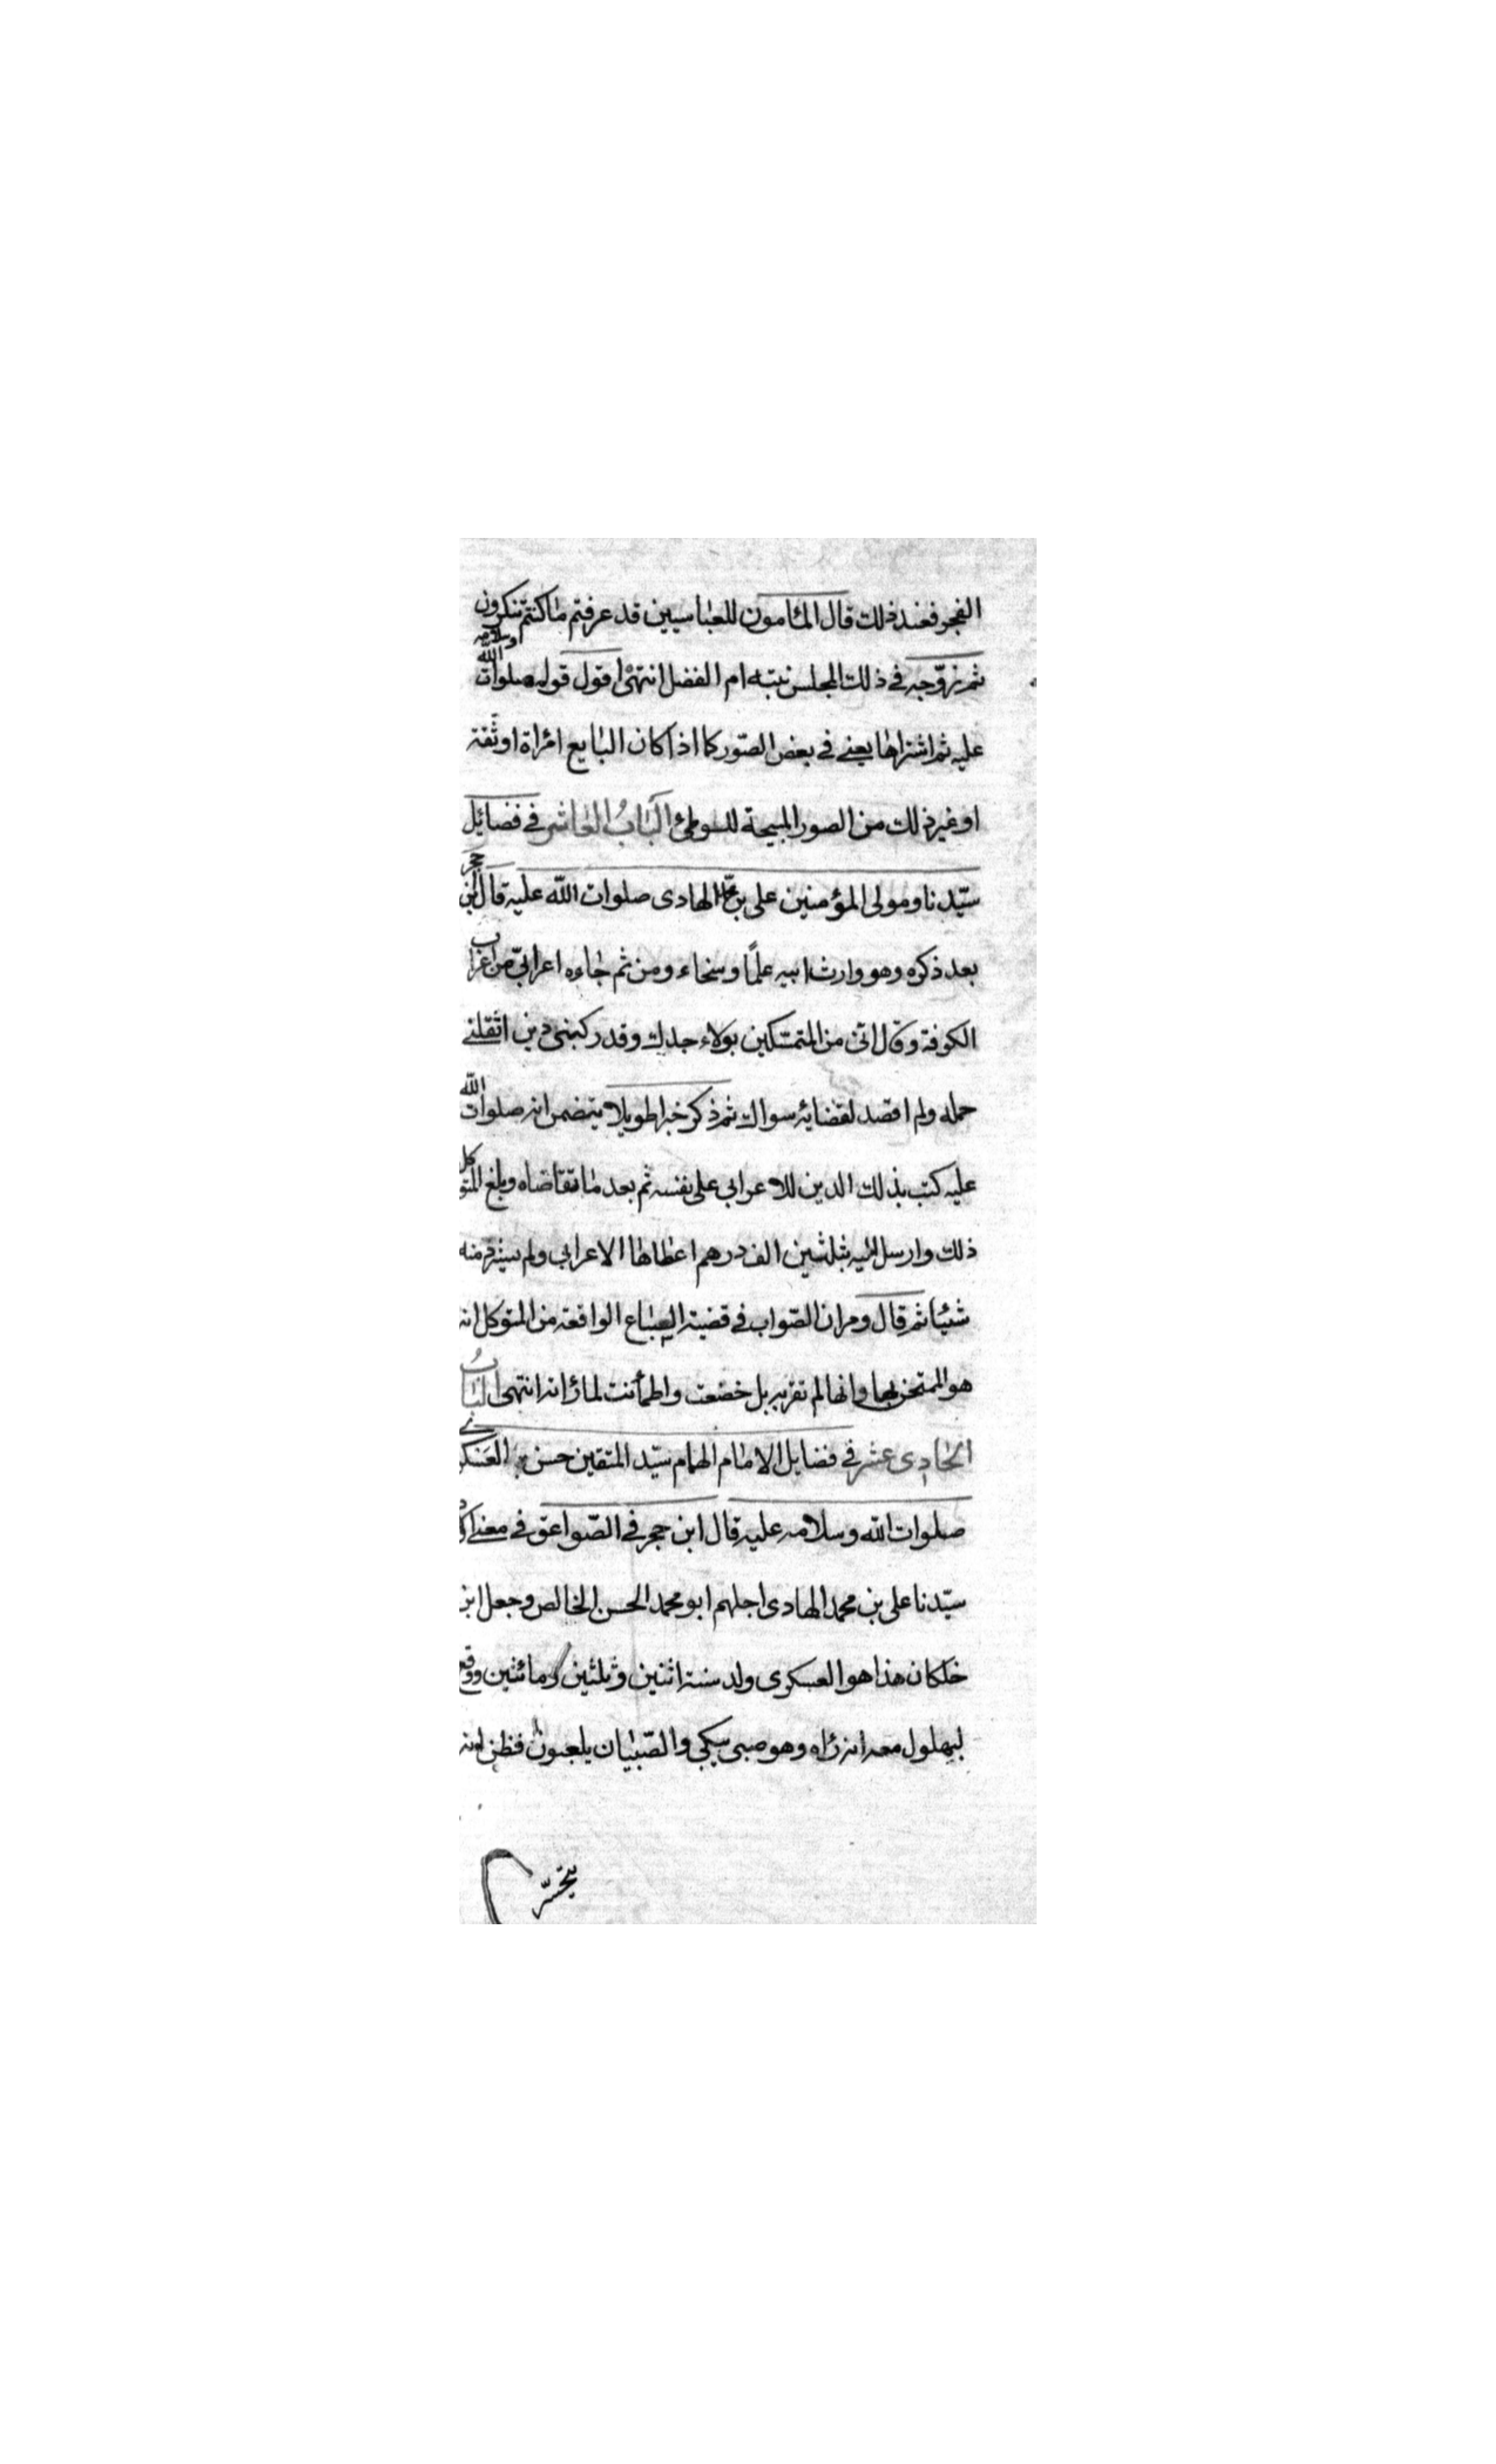 الفجر فعند ذلك قال المأمون للعباسيين قد عرفتم ما كنتم تنكرون
ثم زوّجه في ذلك المجلس بنته ام الفضل انتهى اقول قوله صلوات الله وسلامه
عليه ثم اشتراها يعني في بعض الصّور كما اذا كان البايع امرأة او ثقة
او غير ذلك من الصور المبيحة للوطئ الباب العاشر في فضائل
سيّدنا ومولى المؤمنين على بن محمد الهادى صلوات الله عليه قال ابن حجر
بعد ذكره وهو وارث ابيه علمًا وسخاء ومن ثم جاءه اعرابيّ من اعراب
الكوفة وقال انّى من المتمسّكين بولاء جدك وقد ركبني دين اثقلني
حمله ولم اقصد لقضائه سواك ثم ذكر خبرا طويلا يتضمن انه صلوات الله
عليه كتب بذلك الدين للاعرابي على نفسه ثم بعد ما تقاضاه وبلغ المتوكل
ذلك وارسل اليه بثلثين الف درهم اعطاها الاعرابي ولم يسترد منه
شيئا ثم قال ومر ان الصّواب في قضية السباع الواقعة من المتوكل انه
هو الممتحن بها وانها لم تقربه بل خضعت واطمأنت لما رأته انتهى الباب
الحادى عشر في فضايل الامام الهمام سيّد المتقين حسن العسكري
صلوات الله وسلامه عليه قال ابن حجر في الصّواعق في معنى
سيّدنا على بن محمد الهادى اجلهم ابو محمد الحسن الخالص وجعل ابن
خلكان هذا هو العسكرى ولد سنة اثنين وثلثين ومائتين ووقع
لبهلول معه انه رآه وهو صبى يبكي والصّبيان يلعبون فظن انه
يتحسّر